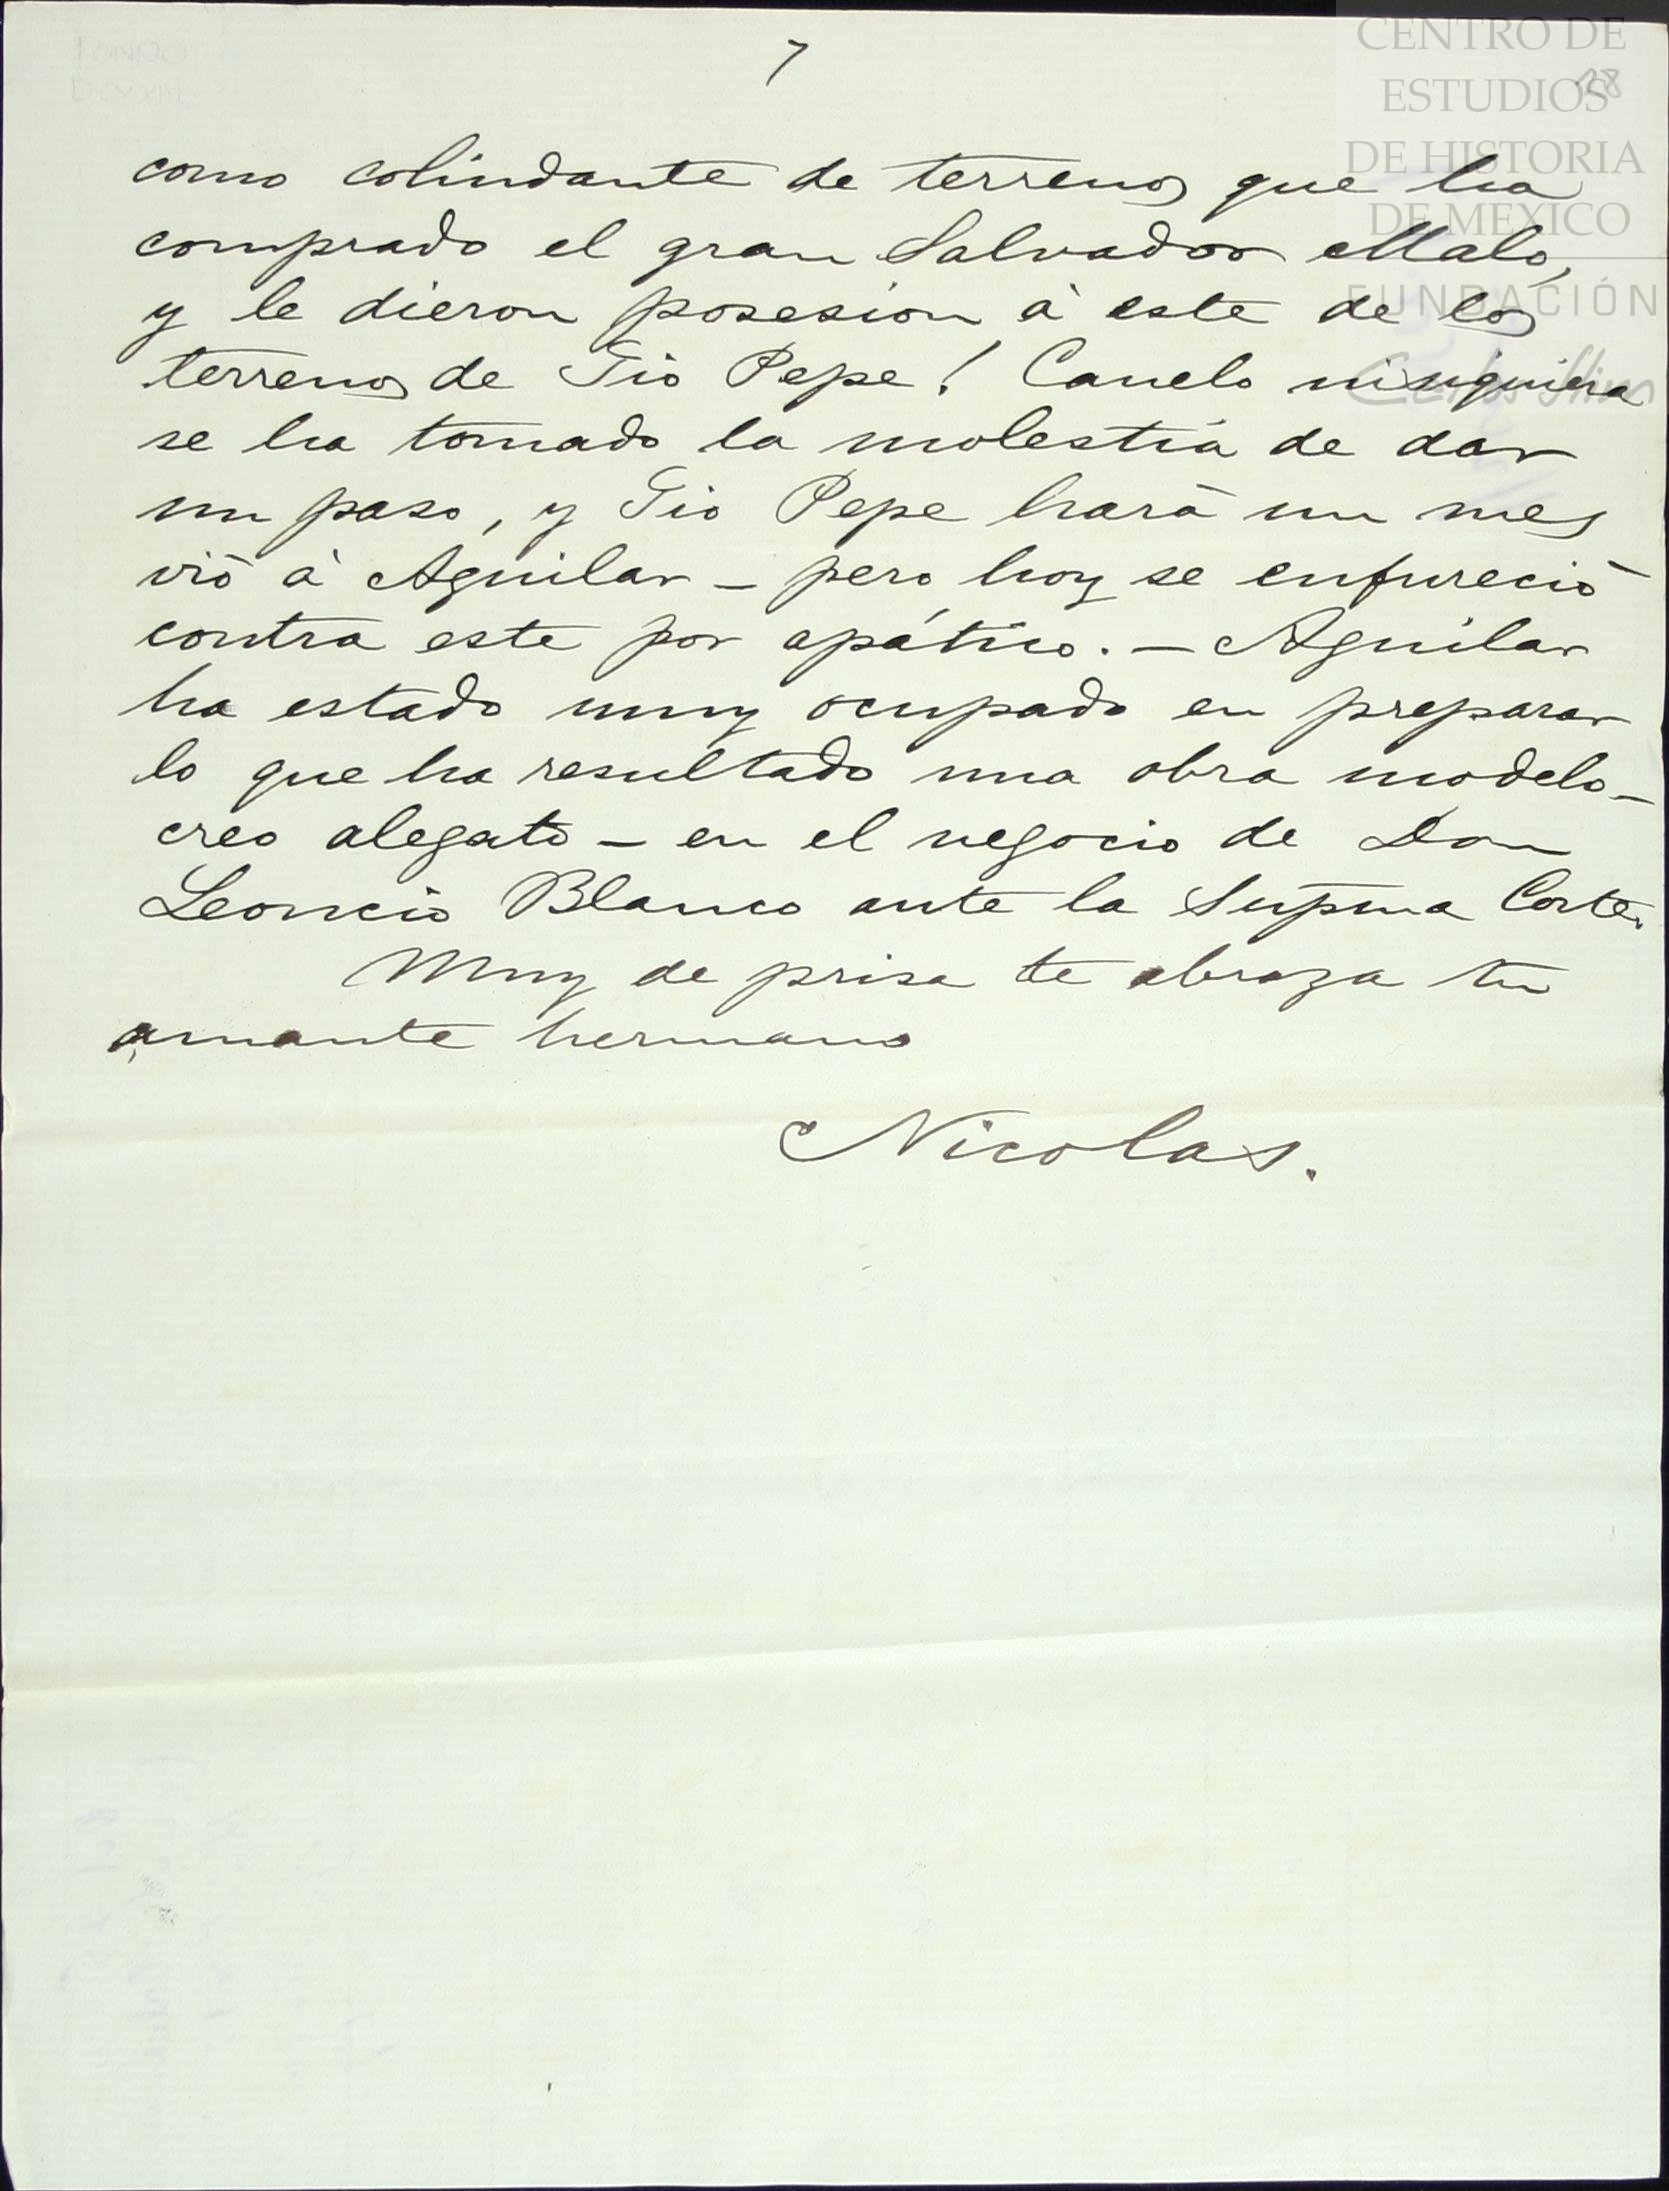 7
CENTRO DE
ESTUDIOS
DE HISTORIA
DE MEXICO
FUNDACIÓN
Carlos Slim
28
FONDO
DCXXIII
como colindante de terrenos que ha
comprado el gran Salvador Malo,
y le dieron posesion à este de los
terrenos de Tio Pepe! Canelo nisiquiera
se ha tomado la molestia de dar
un paso, y Tio Pepe hará un mes
vió à Aguilar – pero hoy se enfureció
contra este por apático. – Aguilar
ha estado muy ocupado en preparar
lo que ha resultado una obra modelo –
creo alegato – en el negocio de Don
Leoncio Blanco ante la Supma Corte.
Muy de prisa te abraza tu
amante hermano
Nicolas.